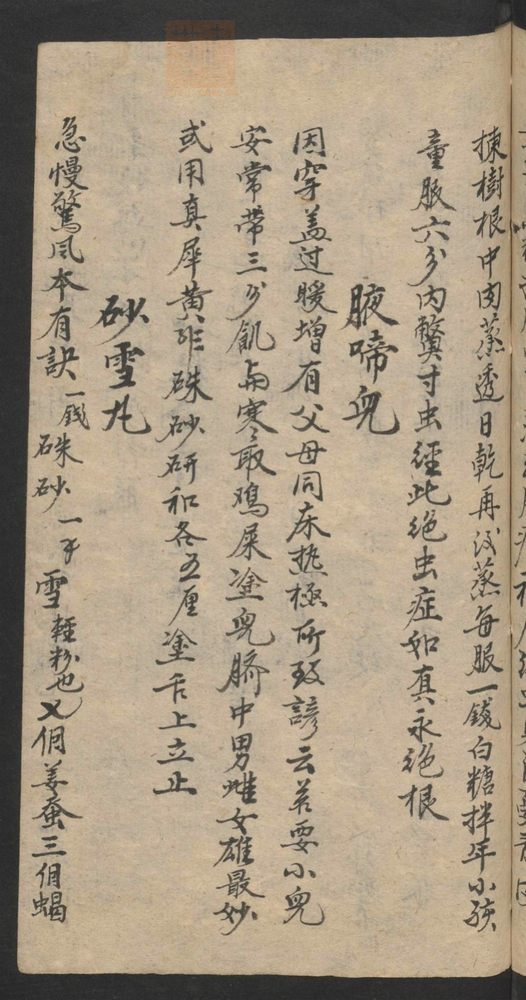 揀樹根中肉蒸透日乾再後蒸每服一錢白糖拌年小孩
童服六分内蟹寸虫經此絕虫症如真永絕根
腋啼兒
因穿盖过暖增有父母同床热極所致諺云若要小兒
安常带三分飢与寒取鸡屎塗兒脐中男雌女雄最妙
或用真犀黄非硃砂研和各五厘塗舌上立止
砂雪丸
急慢驚風本有訣一錢硃砂一手雪輕粉也又個姜蚕三個蝎